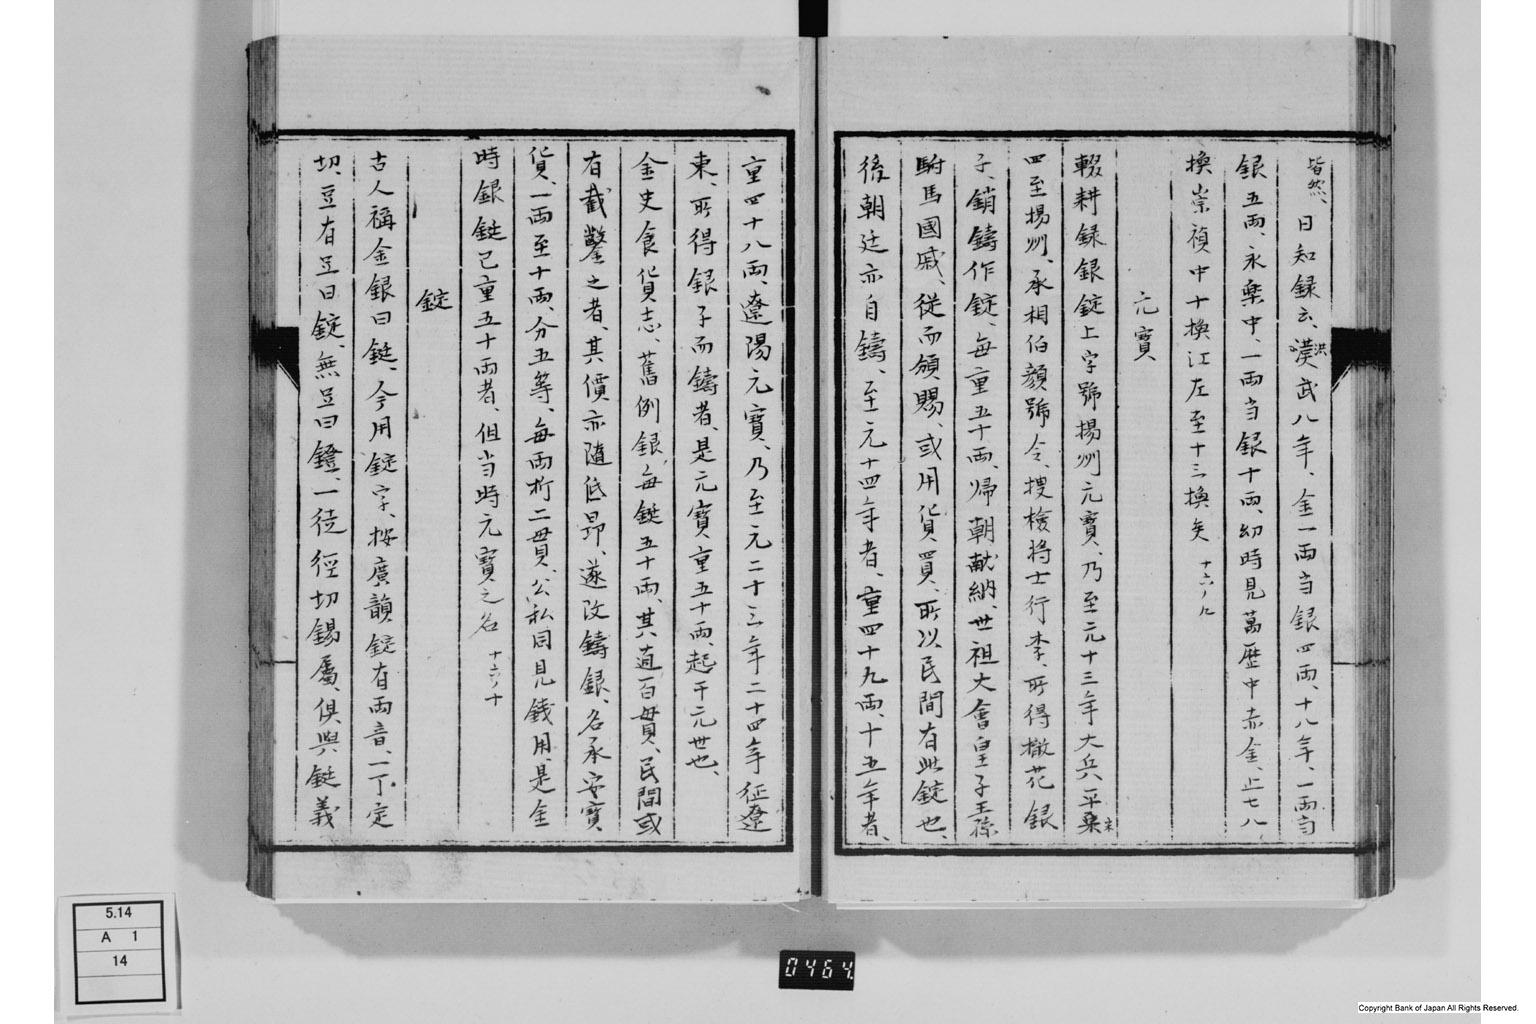 皆然、日知録云、洪武八年、金一両当銀四両、十八年、一両当
銀五両、永楽中、一両当銀十両、幼時見萬歴中赤金、止七八
換崇禎中十換江左至十三換矣 十六ノ九
元寶
輟耕録銀錠上字號揚州元寶、乃至元十三年大兵平宋
四至揚州、承相伯顔號令、捜檢将士行李、所得撒花銀
子、銷鑄作錠、毎重五十両、帰朝献納、世祖大會皇子王孫
駙馬國戚、従而頒賜、或用貨買、所以民間有此錠也、
後朝廷亦自鑄、至元十四年者、重四十九両、十五年者、
重四十八両、遼陽元寶、乃至元二十三年二十四年征遼
東、所得銀子而鑄者、是元寶重五十両、起于元世也、
金史食貨志、舊例銀毎鋌五十両、其直百貫、民間或
有截鑿之者、其價亦隨低昂、遂改鑄銀、名承安寶
貨、一両至十両、分五等、毎両折二貫、公私同見錢用、是金
時銀鋌已重五十両者、但当時元寶之名 十六ノ十
錠
古人稱金銀曰鋌、今用錠字、按廣韻錠有両音、一丁定
切、豆有足曰錠、無足曰鐙、一徒徑切錫屬、倶與鋌義
5.14
A 1
14
0464.
Copyright Bank of Japan All Rights Reserved.